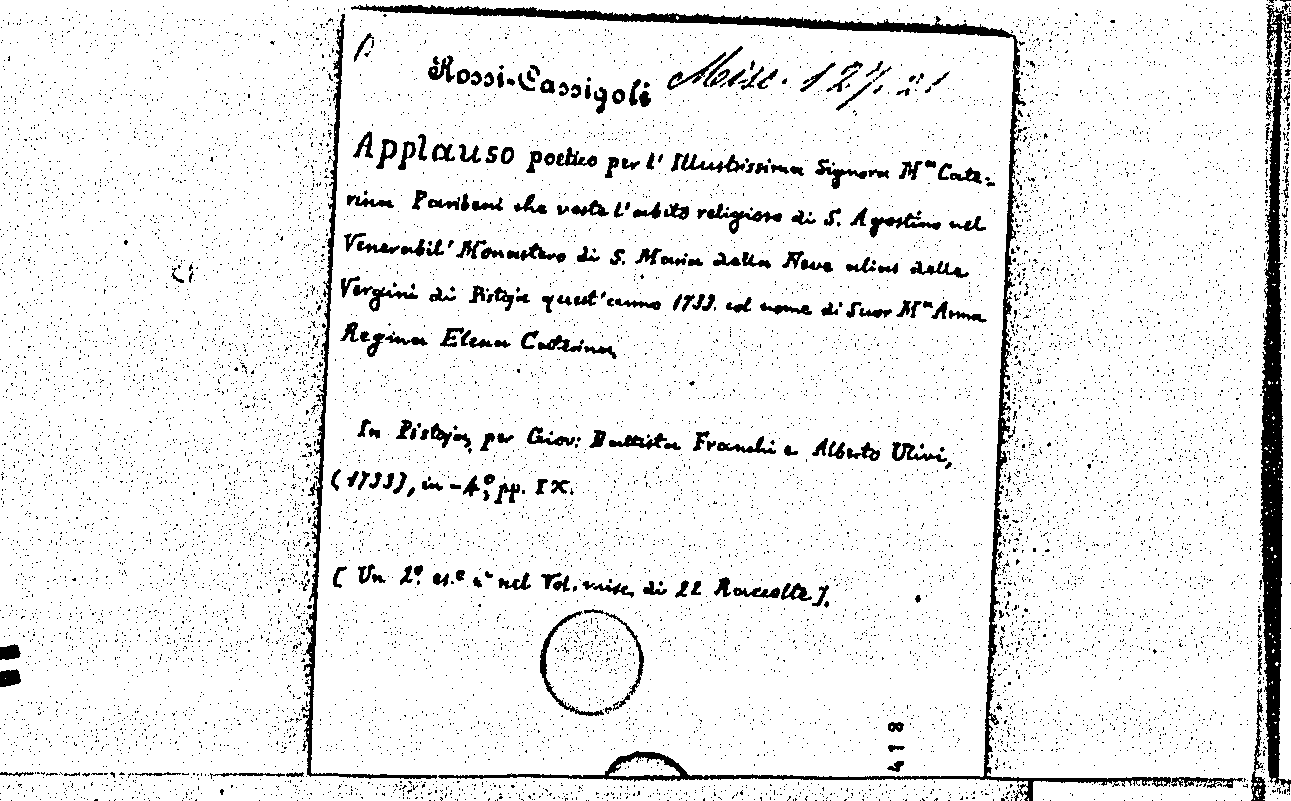 Rossi-Cassigoli Misc. 127. 21
Applauso poetico per l' Illustrissima Signora Mª Cate-
rina Paribeni che veste l'abito religioso di S. Agostino nel
Venerabil' Monastero di S. Maria della Neve alias delle
Vergini di Pistoja quest'anno 1733. col nome di Suor Mª Anna
Regina Elena Caterina,
In Pistoja, per Giov: Battista Franchi e Alberto Ulivi,
(1733), in-4º, pp. IX.
[Un 2º. es.e è nel Vol. misc. di 22 Raccolte].
418